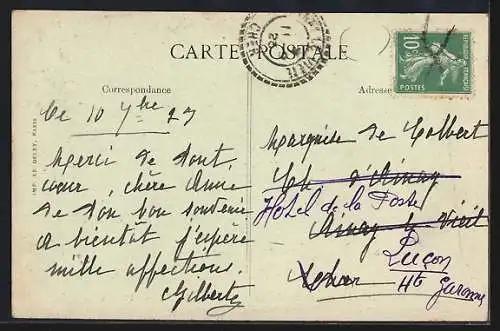 CARTE POSTALE
Correspondance
Adresse
RÉPUBLIQUE FRANÇAISE
10c
POSTES
CHER
IMP. LE DELEY, PARIS
Ce 10 7bre 27
Merci de tout
cœur, chère Amie
de ton bon souvenir
A bientôt j'espère
mille affections.
Gilberte
Marquise de Colbert
Ch. d'Ainay
Hôtel de la Poste
Ainay le Vieil
Luçon
Cher
Hte Garonne